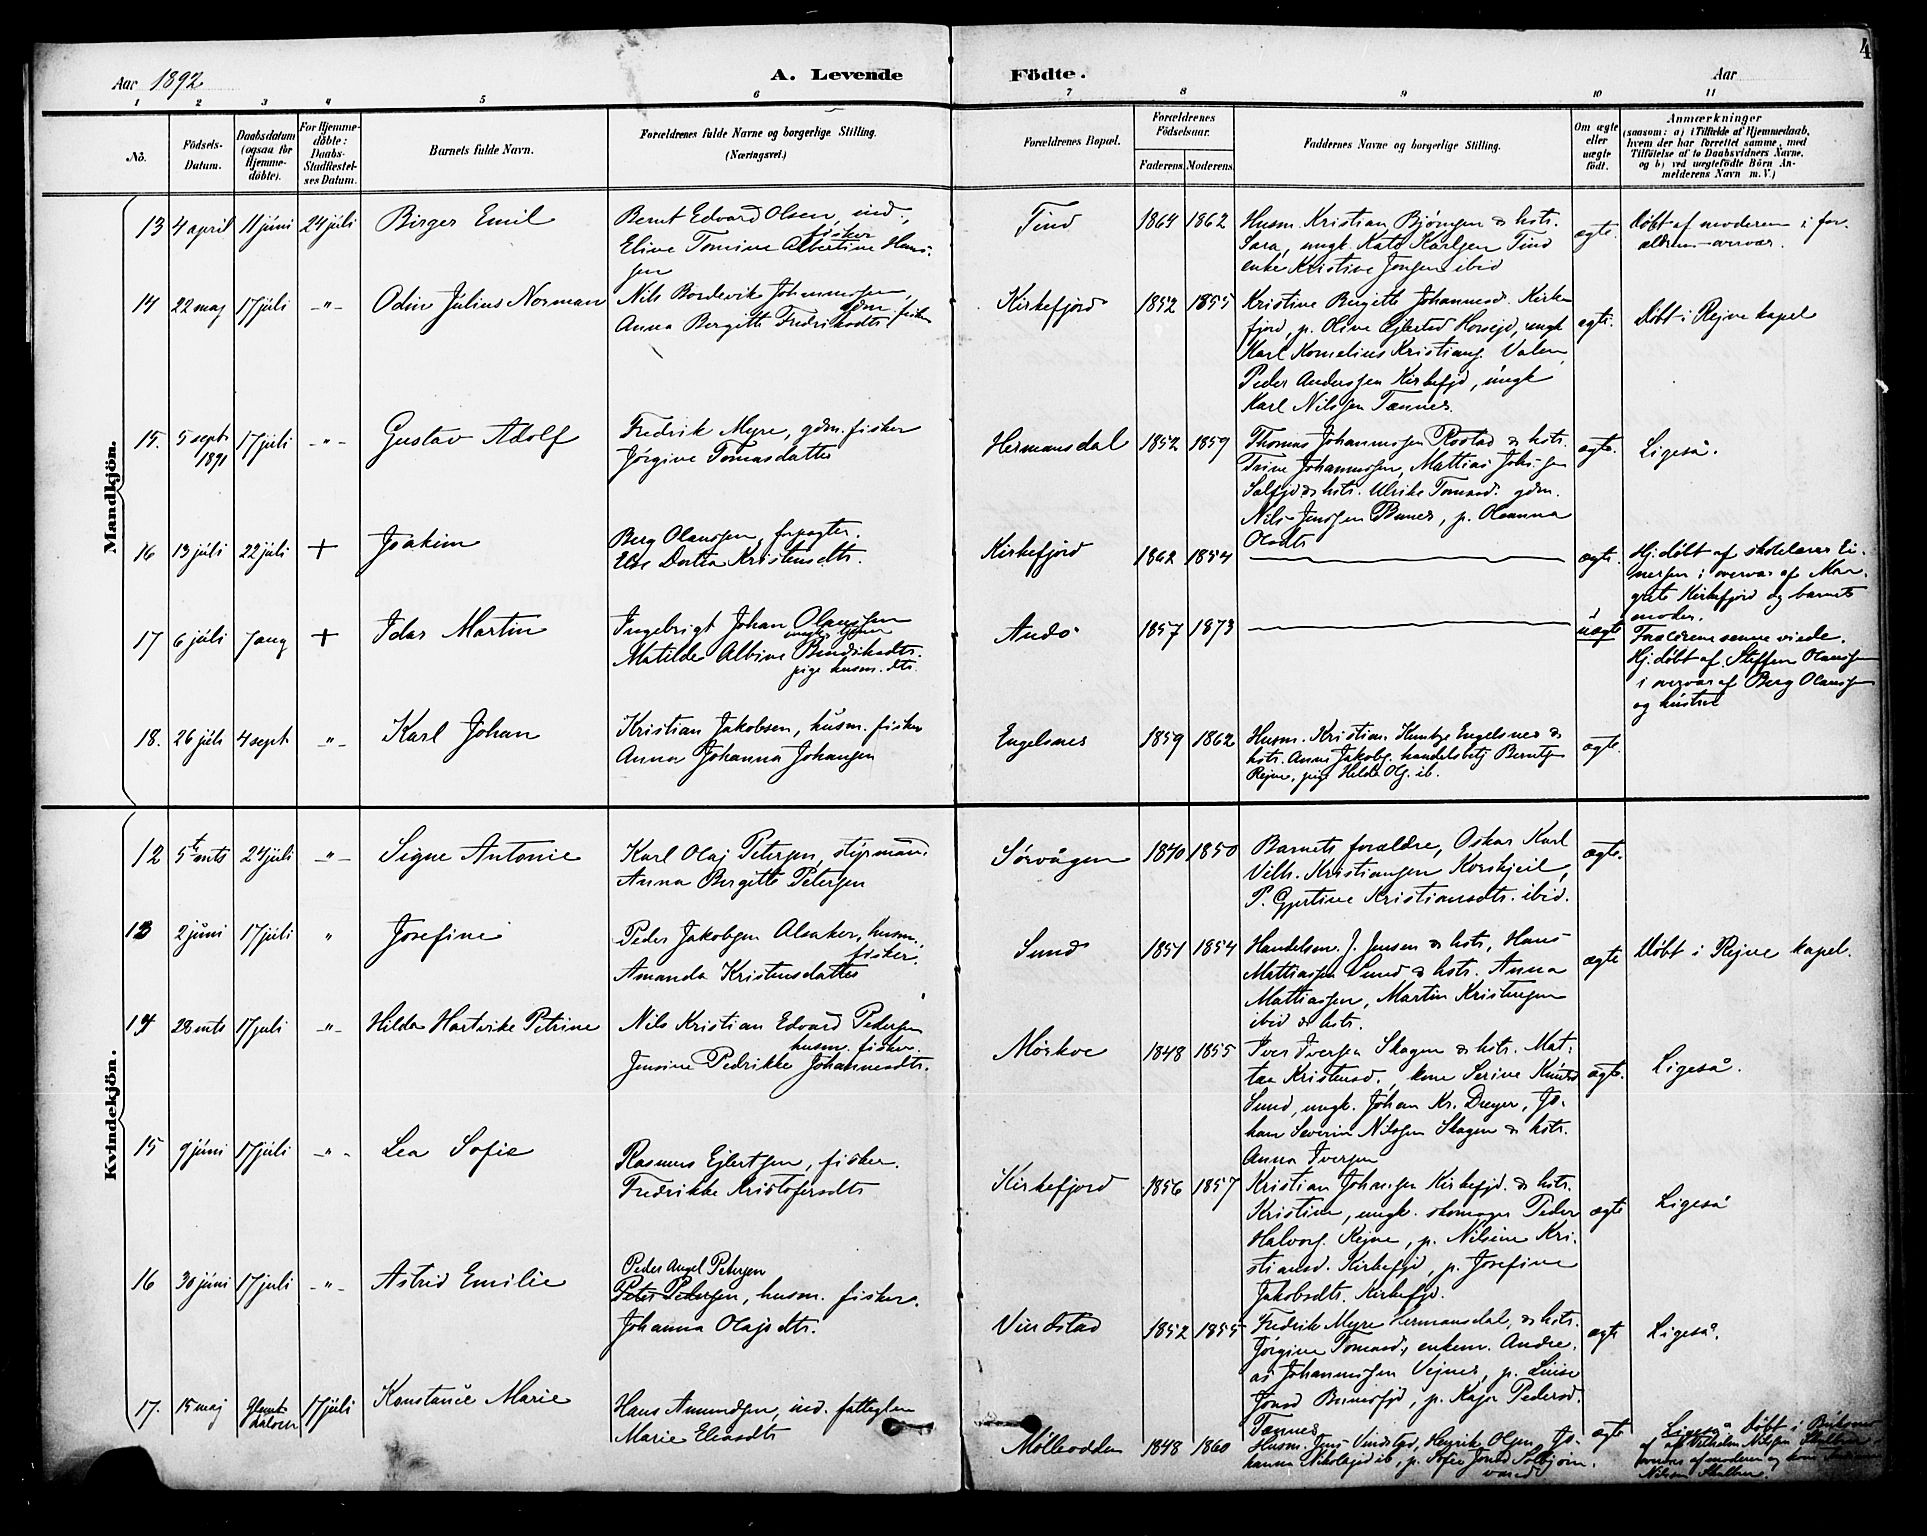 4
Aar 1892
A. Levende Födte.
Aar
1 2 3 4 5 6 7 8 9 10 11
Nô.
Födsels-Datum.
Daabsdatum (ogsaa for Hjemme-döbte).
For Hjemme-döbte: Daabs-Stadfæstel-ses Datum.
Barnets fulde Navn.
Forældrenes fulde Navne og borgerlige Stilling. (Næringsvei.)
Forældrenes Bopæl.
Forældrenes Födselsaar.
Faderens. Moderens.
Faddernes Navne og borgerlige Stilling.
Om ægte eller uægte födt.
Anmærkninger
(saasom: a) i Tilfælde af Hjemmedaab, hvem der har forrettet samme, med Tilföielse af to Daabsvidners Navne, og b) ved uægtefödte Börn An-melderens Navn m. V.)
Mandkjön.
13 4 april 11 júni 24 júli Birger Emil
Bernt Edvard Olsen, ind., fisker
Elive Tomine Albertine Hans-
sen
Tind 1864 1862
Husm. Kristian Bjöngen & hstr.
Sara, ungk. Kato Karlsen Tind
enke Kristine Jonsen ibid
ægte.
Döbt af moderen i for-
ældrenes overvær.
14 22 maj 17 júli -"- Odin Július Norman
Nils Bordevik Johannessen, gdm. fisker
Anna Bergitte Fredriksdtr
Kirkefjord 1852 1855
Kristine Bergitte Johannesd. Kirke-
fjord, p. Olive Ejlertsd Horsejd, ungk
Karl Kornelius Kristians. Valen,
Peder Anderssen Kirkefjd, úngk
Karl Nilssen Tennes.
ægte.
Döbt i Rejne kapel
15. 5 septr 1891 17 júli -"- Gustav Adolf
Fredrik Myre, gdm. fisker
Jörgine Tomasdatter
Hermansdal 1852 1859
Thomas Johannessen Rostad & hstr.
Trine Johannessen, Mattias Johs-sen
Solfjd & hstr. Ulrike Tomasd. gdm.
Nils Jenssen Bunes, p. Oleanna
Olsdtr
ægte.
Ligeså.
16 13 júli 22 júli + Joakim
Berg Olaussen, forpagter.
Else Dortea Kristensdtr.
Kirkefjord 1862 1854
ægte.
Hj. döbt af skolelærer Ei-
nersen i overvær af Mar-
grete Kirkefjord og barnets
moder.
17 6 júli 7 aug + Idar Martin
Ingebrigt Johan Olaussen
Matilde Albine Bendiksdtr.
pige husm. dtr.
Andö 1857 1873
úægte
Forældrene senere viede.
Hj. döbt af Steffen Olaussen
i overvær af Berg Olaussen
og hústru
18. 26 júli 4 sept. -"- Karl Johan
Kristian Jakobsen, húsm. fisker
Anna Johanna Johansen
Engelsnes 1859 1862
Husm. Kristian Engelsnes &
hstr. Anna Jakobs. handelsbetj Berntsen
Rejne, pige Hilda Ols. ib.
ægte.
Kvindekjön.
12 5te mts 24 júli -"- Signe Antonie
Karl Olaj Petersen, styrmand.
Anna Bergitte Petersen
Sörvågen 1840 1850
Barnets forældre, Oskar Karl
Vilh. Kristiansen Korshjeil,
P. Gjertine Kristiansdtr. ibid.
ægte.
13 2 júni 17 júli " Josefine
Peder Jakobsen Alsaker, husm., fisker.
Amanda Kristensdatter
Sund 1851 1854
Handelsm. J. Jensen & hstr, Hans
Mattiassen Sund & hstr. Anna
Mattiassen, Martin Kristensen
ibid & hstr.
ægte
Döbt i Rejne kapel.
14 28 mts 17 juli -"- Hilda Hartvike Petrine
Nils Kristian Edvard Pedersen
husm. fisker.
Jensine Pedrikke Johannesdtr.
Mörkve 1848 1855
Iver Iversen Skagen & hstr. Mat-
tea Kristensd., kone Serine Knútsd
Sund, ungk. Johan Kr. Dreyer, Jo-
han Severin Nilssen Skagen & hstr.
Anna Iversen
ægte.
Ligeså.
15 9 júni 17 júli -"- Lea Sofie
Rasmus Ejlertsen, fisker.
Fredrikke Kristofersdtr
Kirkefjord 1856 1857
Kristian Johansen Kirkefjd. & hstr.
Kristine, ungk. skomager Peder
Halvors. Rejne, p. Nilsine Kri-
stiansd. Kirkefjd, p. Josefine
Jakobsdtr. Kirkefjd.
ægte
Ligeså
16 30 júni 17 júli -"- Astrid Emilie
Peder Angel Petersen
Peter Petersen, husm. fisker.
Johanna Olajsdtr.
Vindstad 1852 1855
Fredrik Myre Hermansdal, & hstr.
Jörgine Tomasd., enkem. Andre-
as Johannessen Vejnes, p. Lúise
Jonsd Bunesfjd, p. Kaja Pedersd.
Tennes
ægte
Ligeså.
17. 15 maj 17 júli Konstanse Marie
Hans Amundsen, ind. fattiglem
Marie Eliasdtr
Mölleodden 1848 1860
Husm. Jens Vindstad, Henrik Olsen, Jo-
hanna Nikolajsd ib, p. Sofie Jonsd Solbjörn-
vand
ægte
Ligeså. Döbt i
af Vilhelm Nilssen
overvær af moderen og kone
Nilsen